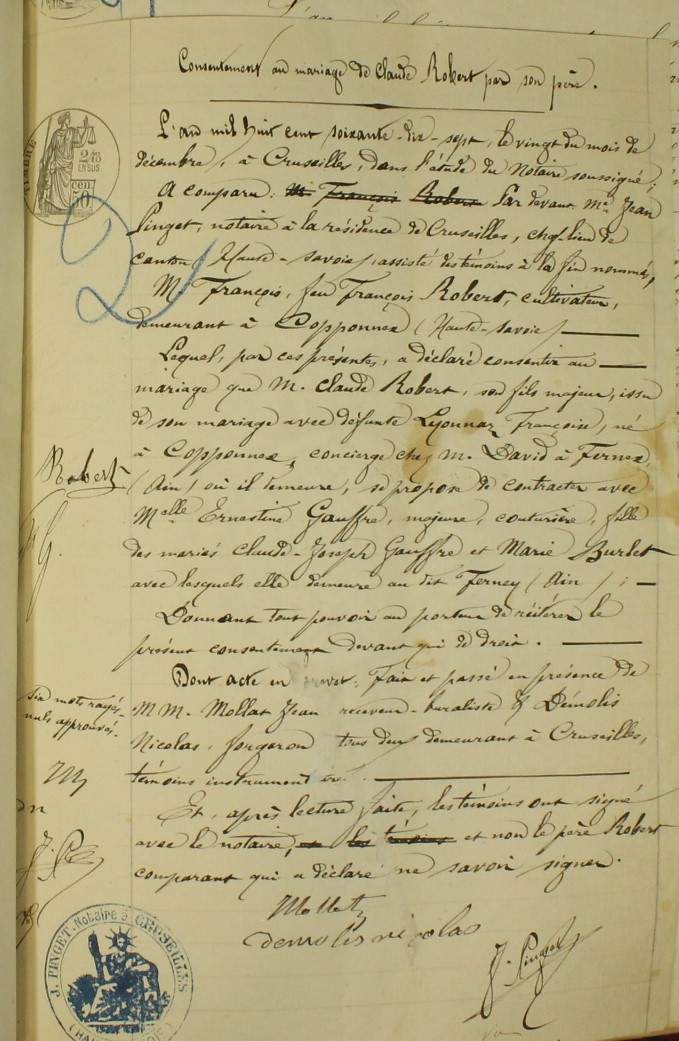 Consentement au mariage de Claude Robert par son père.
L'an mil huit cent soixante-dix-sept, le vingt du mois de
décembre, à Cruseilles, dans l'étude du Notaire soussigné;
A comparu: M. François Robert Par devant Me Jean
Pinget, notaire à la résidence de Cruseilles, chef-lieu de
canton (Haute-Savoie), assisté des témoins à la fin nommés,
M. François, feu François Robert, cultivateur,
demeurant à Copponnex (Haute-Savoie)
Lequel, par ces présentes, a déclaré consentir au
mariage que M. Claude Robert, son fils majeur, issu
de son mariage avec défunte Lyonnaz Françoise, né
à Copponnex, concierge chez M. David à Fernex
(Ain) où il demeure, se propose de contracter avec
Melle Ernestine Gauffre, majeure, couturière, fille
des mariés Claude-Joseph Gauffre et Marie Burlet
avec lesquels elle demeure au dit Ferney (Ain);
Donnant tout pouvoir au porteur de réitérer le
présent consentement devant qui de droit.
Dont acte en brevet: Fait et passé en présence de
MM. Mollat Jean receveur-buraliste & Démolis
Nicolas, forgeron tous deux demeurant à Cruseilles,
témoins instrument
Et, après lecture faite, les témoins ont signé
avec le notaire, les témoins et non le père Robert
comparant qui a déclaré ne savoir signer.
demolis nicolas
J. Pinget
Robert
Six mots rayés
nuls approuvés.
M
dn
J. P
TIMBRE
2/10
EN SUS
cen
50
J. PINGET. Notaire à CRUSEILLES